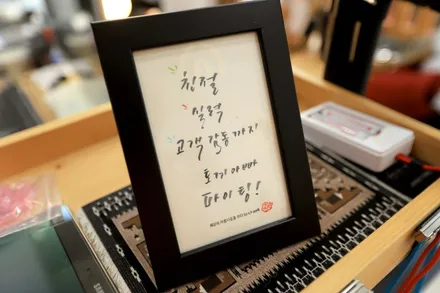 친절
실력
고객 감동 까지
토끼 아빠
파이팅!
SAMSUNG